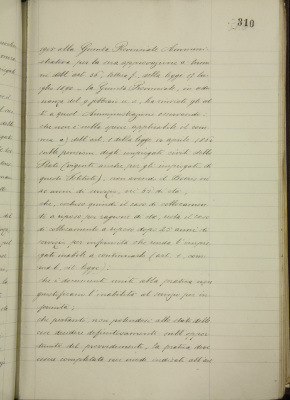 310
gio alla Giunta Provinciale Amminis-
strativa per la sua approvazione a termi-
ni dell'art. 16, lettera, della legge 17 lu-
glio 1890 - la Giunta Provinciale, in adu-
nanza del 9 febbraio u. s., ha rinviato gli at-
ti a quest'Amministrazione osservando:
che non è nella specie applicabile il com-
ma a) dell'art. 1 della legge 14 aprile 1864
sulle pensioni degli impiegati civili dello
Stato (vigente anche per gli impiegati di
questo Istituto), non avendo il
né anni di servizio, né 65 di età;
che, esclusa quindi il caso di collocamen-
to a riposo per ragione di età, resta il caso
di collocamento a riposo dopo 25 anni di
servizio per infermità che renda l'impie-
gato inabile a continuarlo (art. 1, com-
ma b, cit. legge);
che i documenti uniti alla pratica non
giustificano l'inabilità al servizio per in-
fermità;
che pertanto, non potendosi allo stato delle
cose decidere definitivamente sull'oppor-
tunità del provvedimento, la pratica deve
essere completata nei modi indicati all'art.